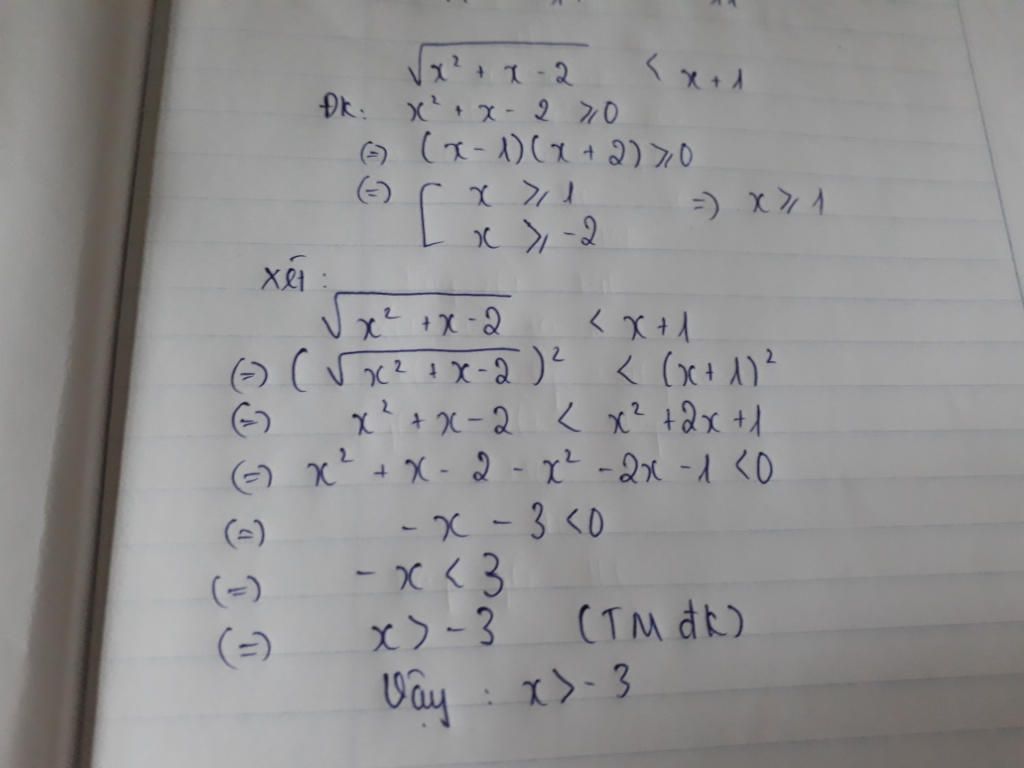 √(x² + x - 2) < x + 1
ĐK: x² + x - 2 ⩾ 0
(=) (x - 1)(x + 2) ⩾ 0
(=) [ x ⩾ 1 =) x ⩾ 1
x ⩾ -2
Xét :
√(x² + x - 2) < x + 1
(=) (√(x² + x - 2))² < (x + 1)²
(=) x² + x - 2 < x² + 2x + 1
(=) x² + x - 2 - x² - 2x - 1 < 0
(=) - x - 3 < 0
(=) - x < 3
(=) x > - 3 (TM đk)
Vậy : x > - 3